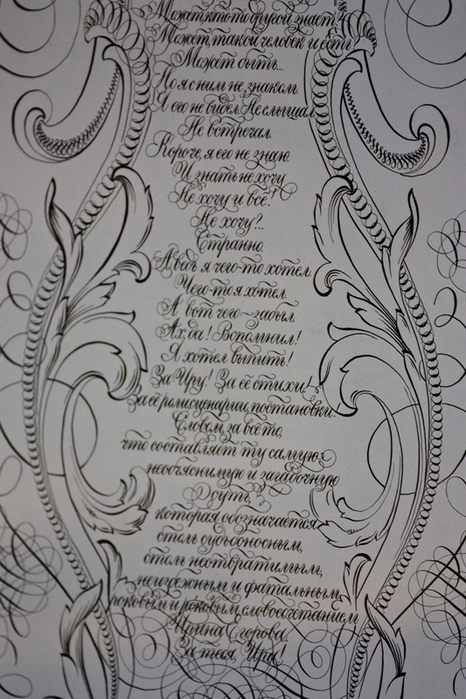 Может, кто-то другой знает?
Может, такой человек и есть
Может быть...
Но я с ним не знаком.
Я его не видел. Не слышал.
Не встречал.
Короче, я его не знаю.
И знать не хочу.
Не хочу и всё!
Не хочу?..
Странно.
А ведь я чего-то хотел.
Чего-то я хотел.
А вот чего - забыл.
Ах, да! Вспомнил!
Я хотел выпить!
За Иру! За её стихи,
за её роли, сценарии, постановки.
Словом, за всё то,
что составляет ту самую
необъяснимую и загадочную
суть,
которая обозначается
столь судьбоносным,
столь неотвратимым,
неизбежным и фатальным,
роковым и роковым словосочетанием
Ирина Егорова.
За тебя, Ира!